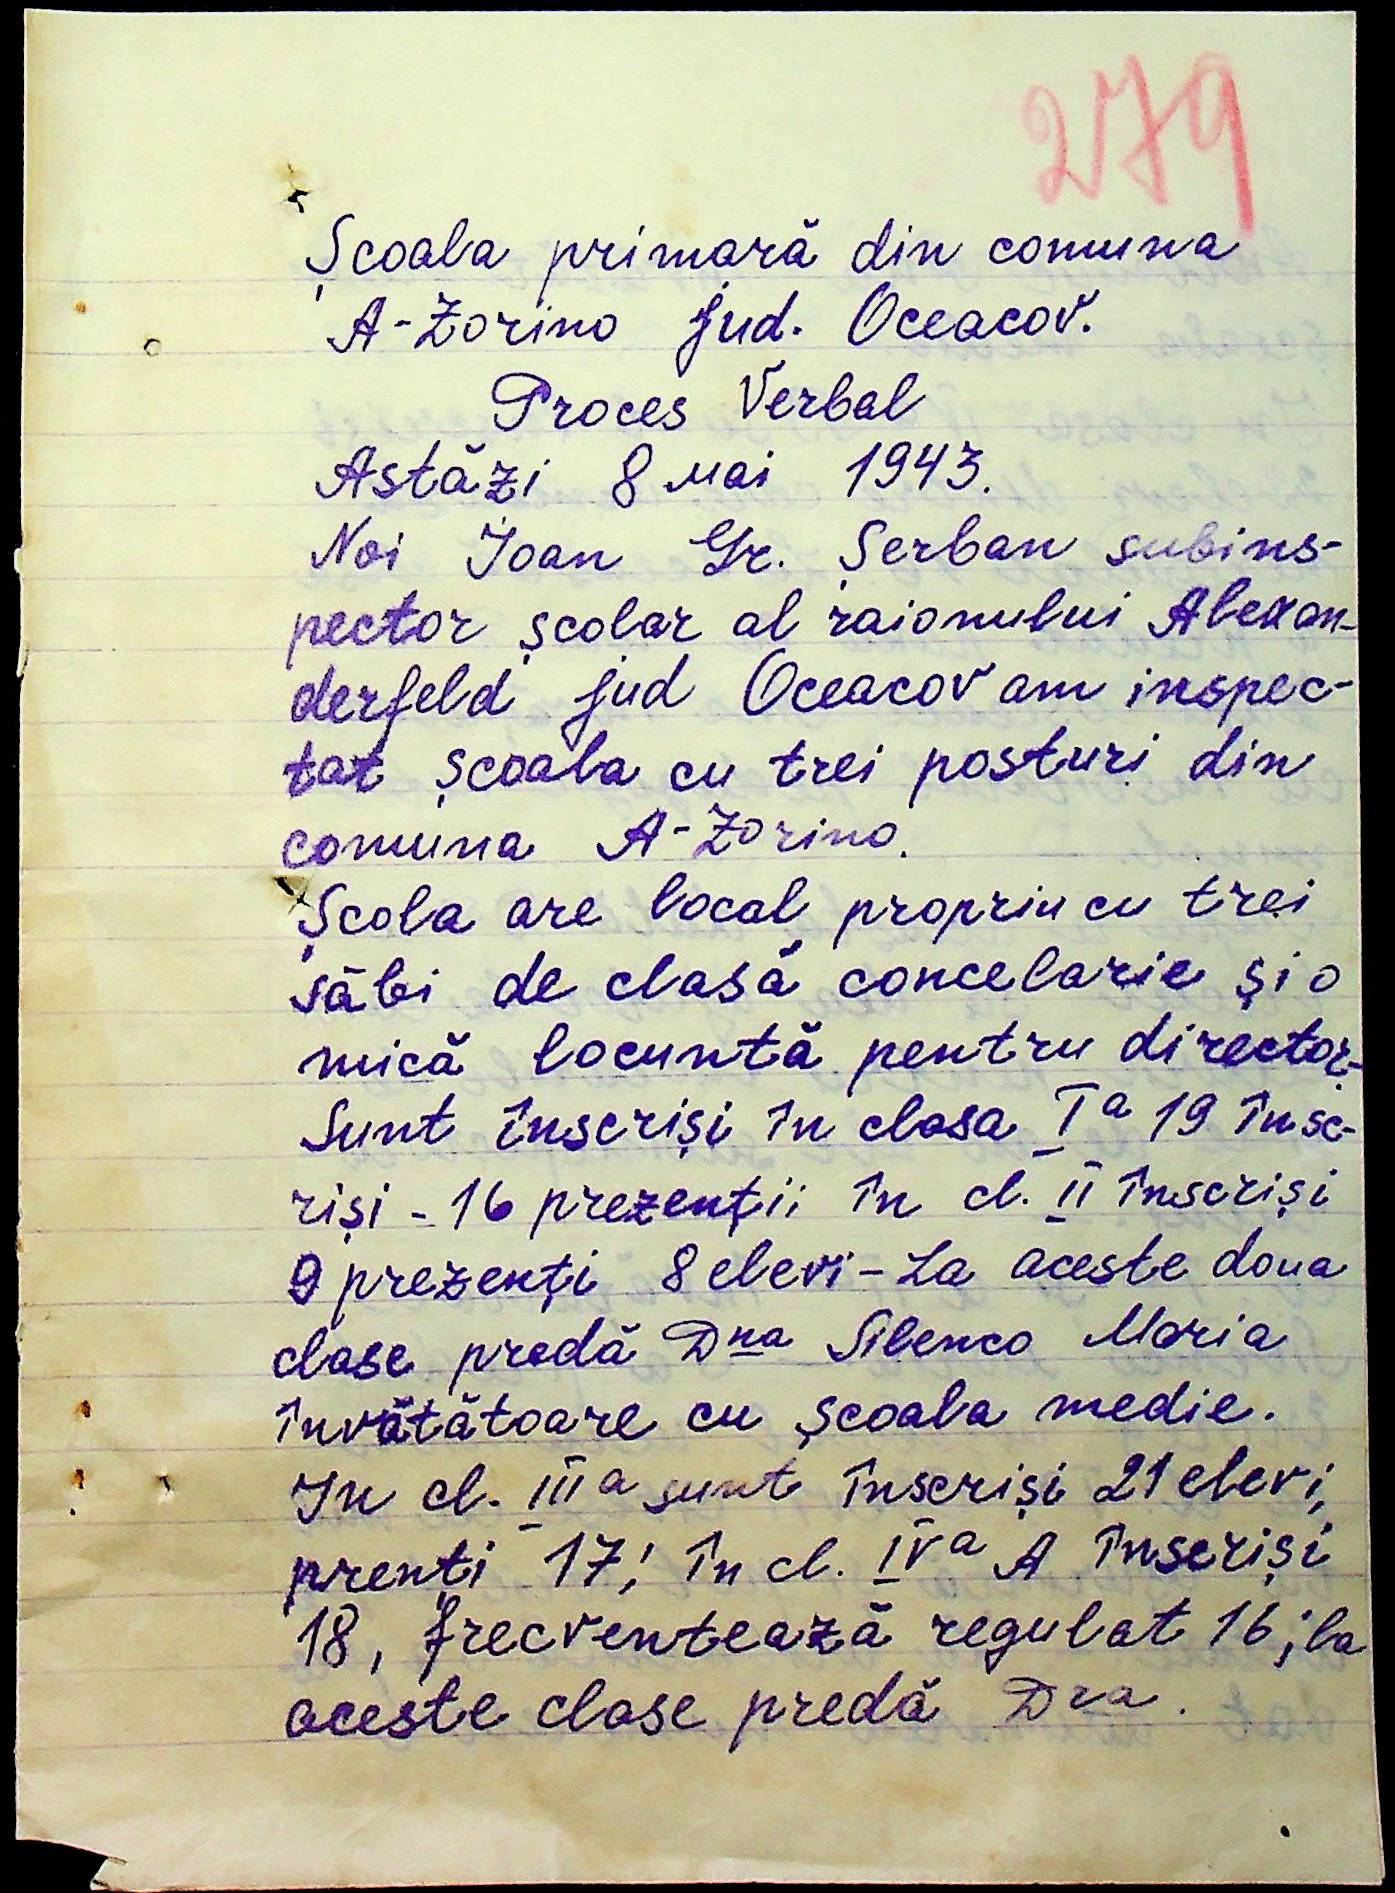 279
Școala primară din comuna
A-Zorino jud. Oceacov.
Proces Verbal
Astăzi 8 mai 1943.
Noi Ioan Gr. Șerban subins-
pector școlar al raionului Alexan-
derfeld jud Oceacov am inspec-
tat școala cu trei posturi din
comuna A-Zorino.
Școla are local propriu cu trei
săli de clasă concelarie și o
mică locuntă pentru director.
Sunt înscriși în clasa I a 19 însc-
riși - 16 prezenții în cl. II înscriși
9 prezenți 8 elevi - La aceste doua
clase predă Dna Silenco Maria
învătătoare cu școala medie.
In cl. III a sunt înscriși 21 elevi,
prenți 17; în cl. IV a A înscriși
18, frecventează regulat 16; la
aceste clase predă Dra.